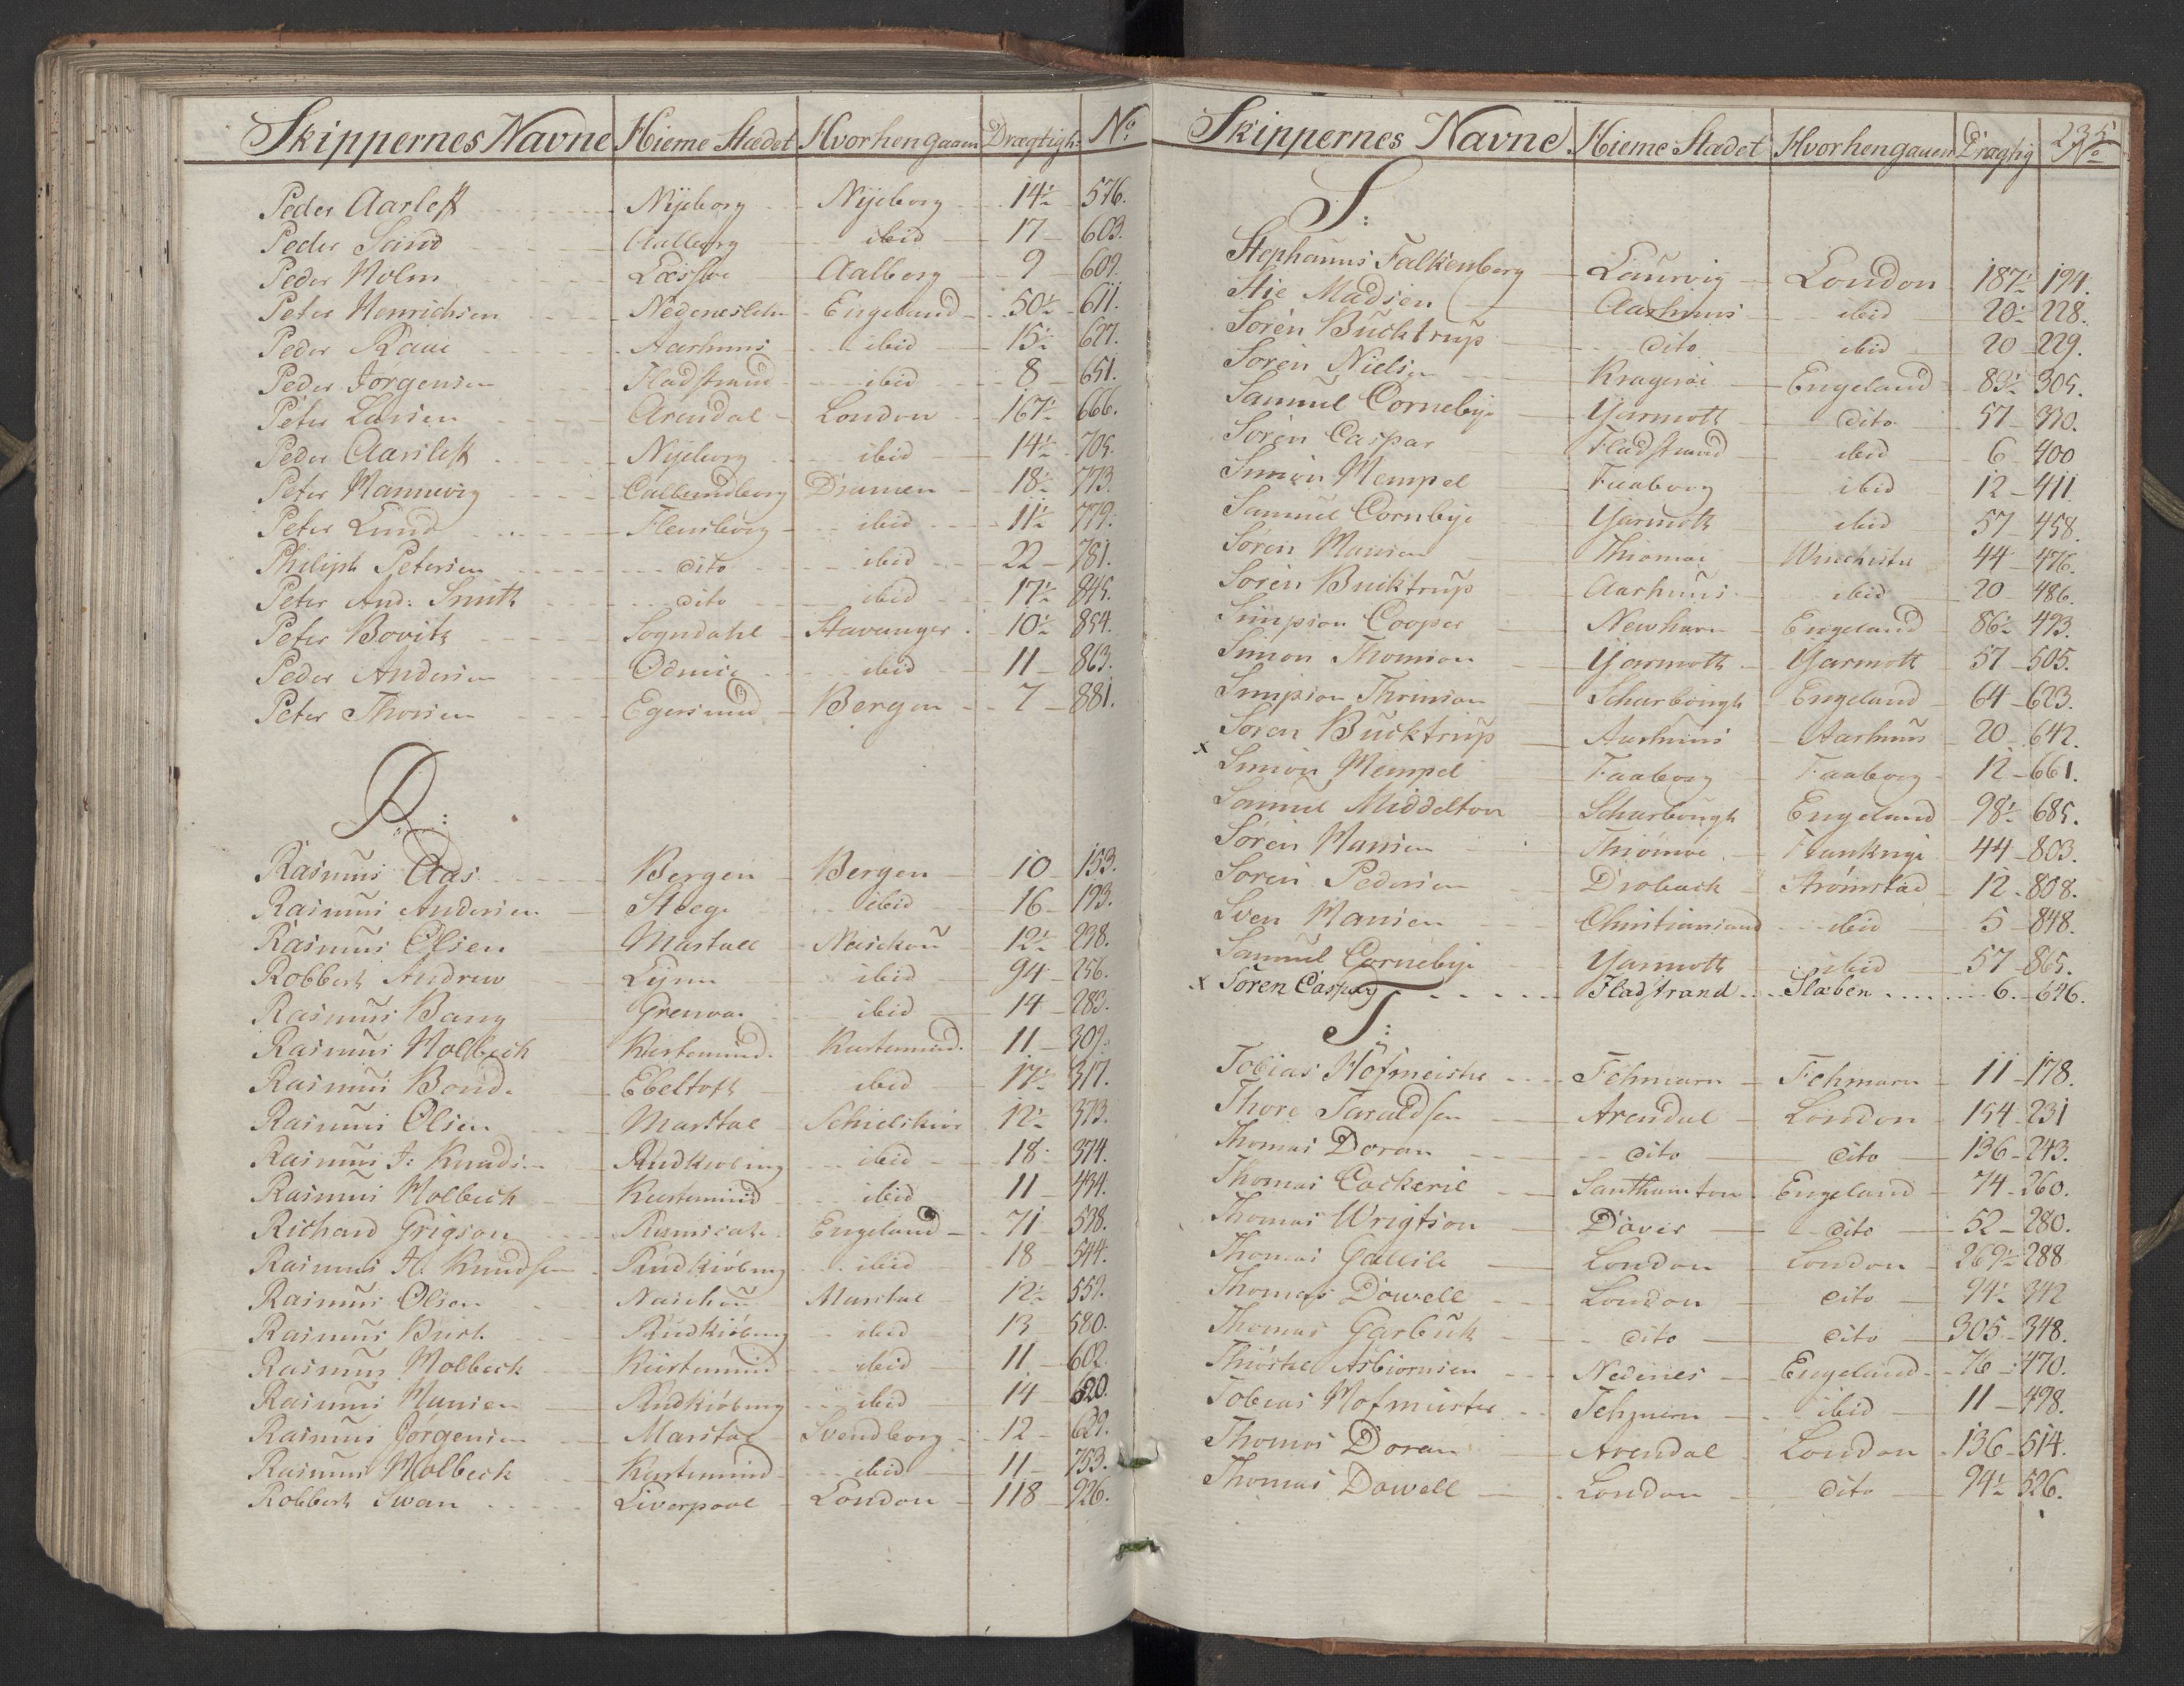 Skippernes Navne Hieme Stædet Hvorhen gaaen Drægtigh: No
Peder Aarlest Nyeborg Nyeborg 14½ 576.
Peder Sand Aalborg ibid 17 603.
Peder Holm Læssøe Aalborg 9 609.
Peter Henrichsen Engeland 50½ 611.
Peder Aarhuus ibid 15½ 627.
Peder Jørgensen Fladstrand ibid 8 651.
Peter Larsen Arendal London 167½ 666.
Peder Aarslest Nyeborg ibid 14½ 705.
Peter Hannevig Callundborg Dramen 18½ 773.
Peter Lund Flensborg ibid 11½ 779.
Philiph Petersen dito ibid 22 781.
Peter And: Smith dito ibid 17½ 845.
Peter Bovitz Sogndahl Stavanger 10½ 854.
Peder Andersen Odense ibid 11 863.
Peter Thorsen Egersund Bergen 7 881.
R:
Rasmus Aas Bergen Bergen 10 153.
Rasmus Andersen Steege ibid 16 193.
Rasmus Olsen Marstall Naschou 12½ 238.
Robbert Andrew Lynn ibid 94 256.
Rasmus Bang Grenoae ibid 14 283.
Rasmus Holbech Kiertemind. Kiertemind. 11 309.
Rasmus Bond. Ebeltoft ibid 17½ 317.
Rasmus Olsen Marstal Schielskiør 12½ 373.
Rasmus J: Knuds.. Rudkiøbing ibid 18 374.
Rasmus Holbech Kiertemind ibid 11 434.
Richard Grigson Engeland 71 538.
Rasmus H. Knudsen Rudkiøbing ibid 18 544.
Rasmus Olsen Naschou Marstal 12½ 559.
Rasmus Rudkiøbing ibid 13 580.
Rasmus Holbech Kiertemind ibid 11 602.
Rasmus Hansen Rudkiøbing ibid 14 620.
Rasmus Jørgensen Marstal Svendborg 12 629.
Rasmus Holbech Kiertemind ibid 11 753.
Robbert Swan Liverpool London 118 926.
Skippernes Navne Hieme Stædet Hvorhen gaaen Drægtig No
235
S:
Stephanus Falkenberg Laurvig London 187½ 194.
Stie Madsen Aarhuus ibid 20½ 228.
Søren Bucktrup dito ibid 20 229.
Søren Nielsen Kragerøe Engeland 83½ 305.
Samuel Cornebye Yarmoth dito 57 330.
Søren Caspar Fladstrand ibid 6 400
Simon Hempel Faaborg ibid 12 411.
Samuel Cornbye Yarmoth ibid 57 458.
Søren Hansen Thiømøe 44 476.
Søren Bucktrup Aarhuus ibid 20 486.
Simpson Cooper Newharn Engeland 86½ 493.
Simon Thomson Yarmoth Yarmoth 57 505.
Simpson Thomson Scharbough Engeland 64 623.
Søren Bucktrup Aarhuus Aarhuus 20 642.
x Simon Hempel Faaborg Faaborg 12 661.
Samuel Middelton Scharbough Engeland 98½ 685.
Søren Hansen Thiømøe Frankrige 44 803.
Søren Pedersen Drøbach Strømstad 12 838.
Sven Hansen Christiansand ibid 5 848.
Samuel Cornebye Yarmoth ibid 57 865.
x Søren Caspar Fladstrand Slæben 6. 646.
T:
Tobias Hofmeister Fehmarn Fehmarn 11 178.
Thore Taraldsen Arendal London 154 231
Thomas Doran dito dito 136 243.
Thomas Cockeril Santhamton Engeland 74 260.
Thomas Wrigtson Dover dito 52 280.
Thomas London London 269½ 288
Thomas Dowell London dito 94½ 342
Thomas Garbutt dito dito 305 348.
Thiøstel Asbiørnsen Nedenes Engeland 76 470.
Tobias Hofmeister Fehmern ibid 11 498.
Thomas Doran Arendal London 136 514.
Thomas Dowell London dito 94½ 526.